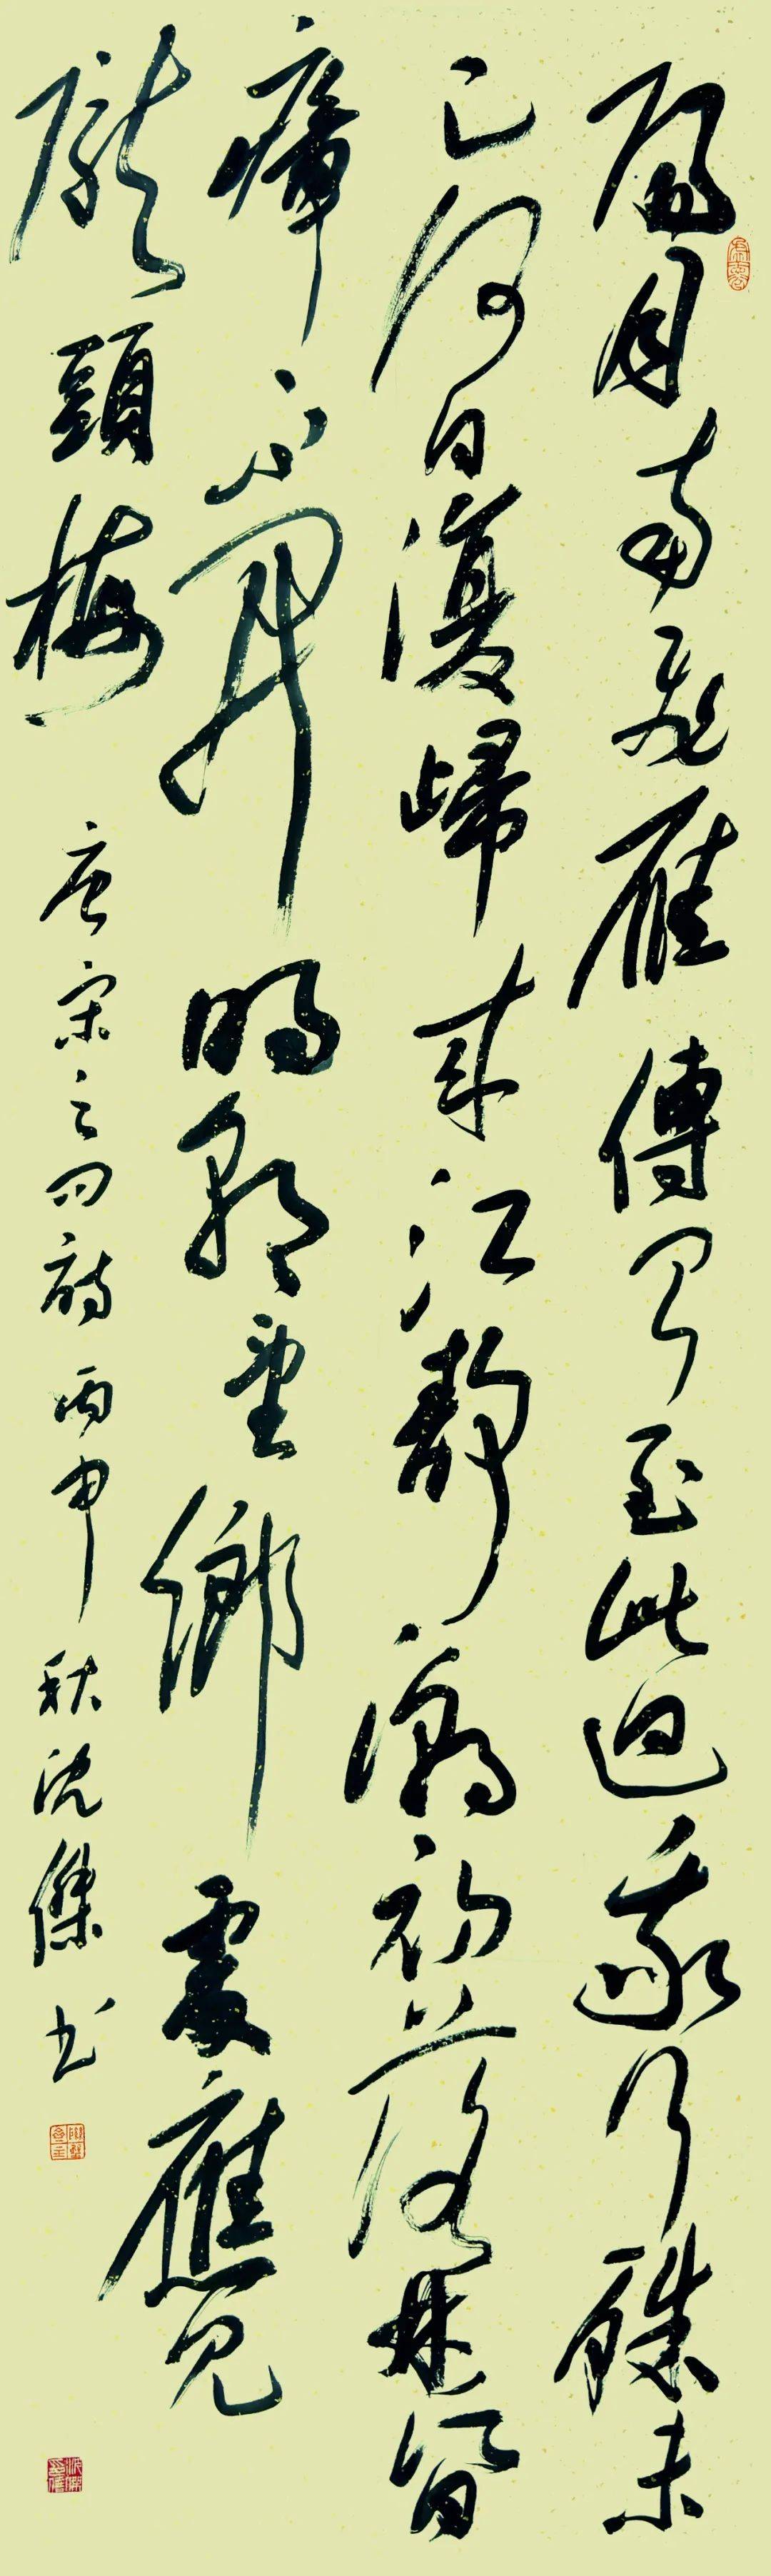 陽月南飛雁傳聞至此迴我行殊未
已何日復歸來江靜潮初落林昏
瘴不開明朝望鄉處應見
隴頭梅
唐宋之问詩丙申秋沈傑书